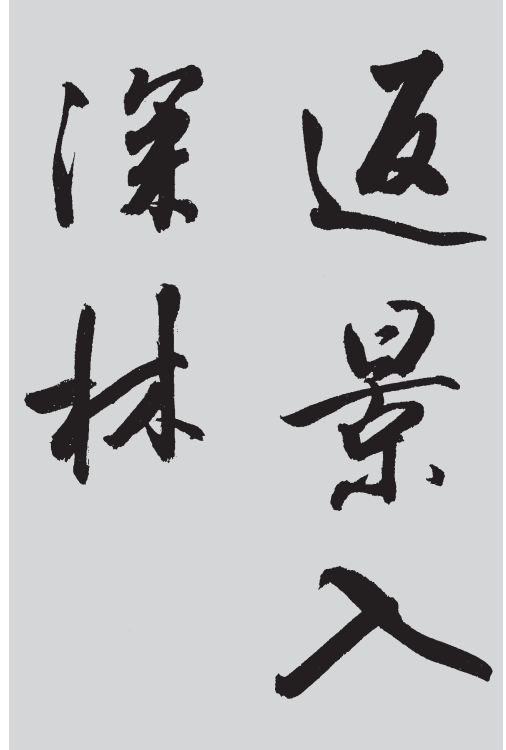 返景入
深林